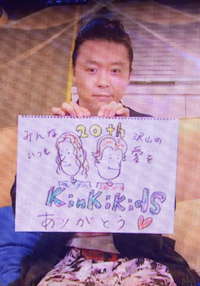 みんな 20th 沢山の
いつも 愛を
KinKi KidS
ありがとう